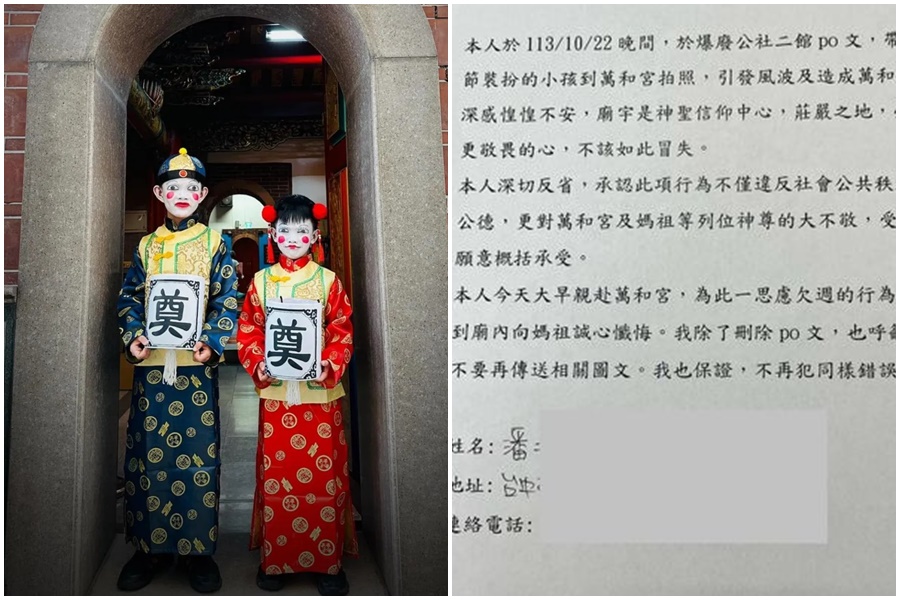 奠
奠
本人於 113/10/22 晚間，於爆廢公社二館 po 文，帶
節裝扮的小孩到萬和宮拍照，引發風波及造成萬和
深感惶惶不安，廟宇是神聖信仰中心，莊嚴之地，
更敬畏的心，不該如此冒失。
本人深切反省，承認此項行為不僅違反社會公共秩
公德，更對萬和宮及媽祖等列位神尊的大不敬，受
願意概括承受。
本人今天大早親赴萬和宮，為此一思慮欠週的行為
到廟內向媽祖誠心懺悔。我除了刪除 po 文，也呼籲
不要再傳送相關圖文。我也保證，不再犯同樣錯誤
姓名：潘
地址：台中
連絡電話：